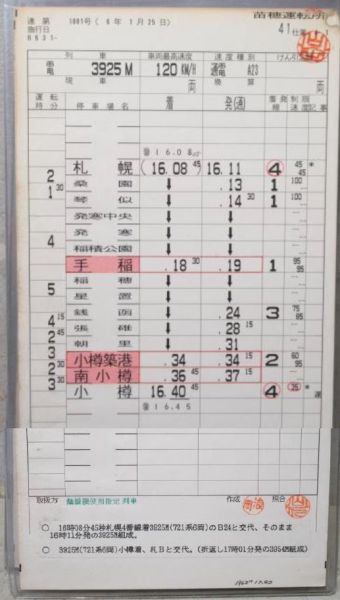 苗穂運転所
達第 1001号 ( 6年 1月 25日 )
施行日
41仕業
列車 車両最高速度 速度種別 けん引定数
電 3925M 120KM/H 通電 A23
現車 換算
運転時分 停車場名 着 発(通) 着発線 制限速度 記事
札幌 (16.08 45) 16.11 4 45 *
2 桑園 ↓ .13 1 100
1 30 琴似 ↓ .14 30 1 100
発寒中央 ↓
4 発寒 ↓
稲積公園 ↓
手稲 .18 30 .19 1 95
稲穂 ↓
5 星置 ↓
銭函 ↓ .24 3 75
4 15 張碓 ↓ .28 15
2 45 朝里 ↓ .31
3 小樽築港 .34 .34 15 2 60 95
2 南小樽 .36 45 .37 15
3 30 小樽 16.40 45 4 25 *
16.45
取扱方 臨線握使用指定列車 作成
○ 16時08分45秒札幌4番線着3925M(721系6両)のB24と交代、そのまま
16時11分発の3925M組成。
○ 3925M(721系6両)小樽着、札Bと交代。(折返し17時01分発の3954M組成)